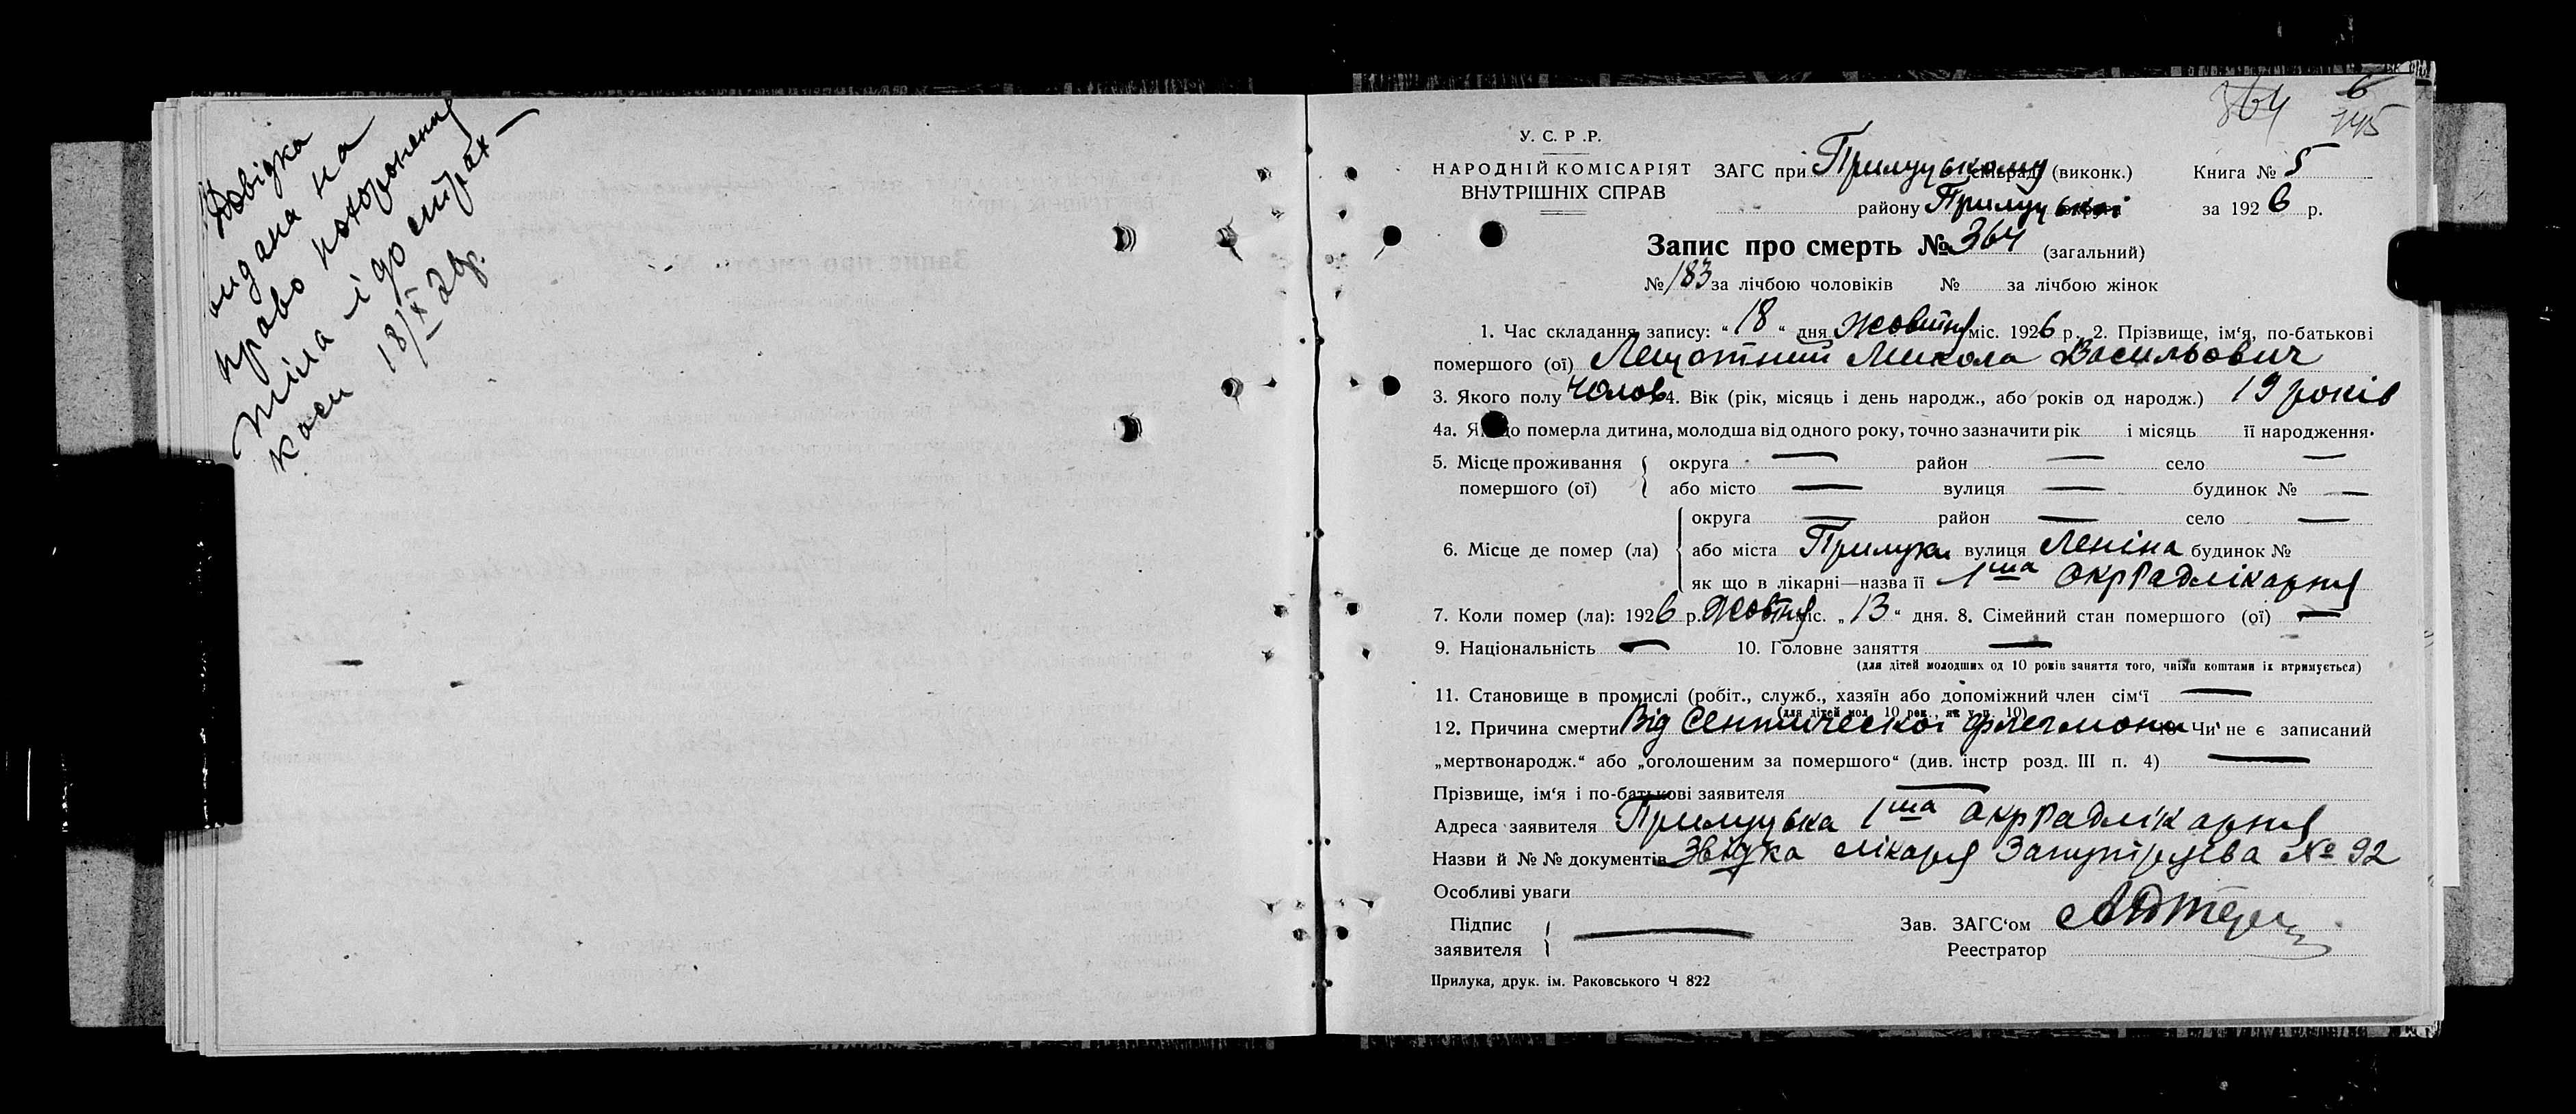 Довідка
видана на
право похоронення
тіла і до страх-
каси 18/X 26р.
364 6
145
У. С. Р .Р.
НАРОДНІЙ КОМІСАРІЯТ
ВНУТРІШНІХ СПРАВ
ЗАГС при Прилуцькому (виконк.) Книга № 5
району Прилуцької за 1926 р.
Запис про смерть № 364 (загальний)
№ 183 за лічбою чоловіків № за лічбою жінок
1. Час складання запису: “ 18 “ дня Жовтня міс. 1926 р. 2. Прізвище, ім‘я, по-батькові
помершого (ої) Микола Васильович
3. Якого полу Чолов 4. Вік (рік, місяць і день народж., або років од народж.) 19 років
4а. Якщо померла дитина, молодша від одного року, точно зазначити рік і місяць її народження.
5. Місце проживання помершого (ої) { округа — район — село —
або місто — вулиця — будинок № —
6. Місце де помер (ла) { округа — район — село —
або міста Прилука вулиця Леніна будинок №
як що в лікарні—назва її 1ша Окррадлікарня
7. Коли помер (ла): 1926 р. Жовтня міс. „ 13 “ дня. 8. Сімейний стан помершого (ої) —
9. Національність — 10. Головне заняття —
(для дітей молодших од 10 років заняття того, чиїми коштами їх втримується)
11. Становище в промислі (робіт., служб., хазяїн або допоміжний член сім‘ї —
(для дітей мол. 10 рок., як у п. 10)
12. Причина смерти Від Септическої флегмони 13. Чи не є записаний
„мертвонародж.“ або „оголошеним за помершого“ (див. інстр розд. III п. 4) —
Прізвище, ім‘я і по-батькові заявителя —
Адреса заявителя Прилуцька 1ша Окррадлікарня
Назви й №№ документів Звідка лікаря № 92
Особливі уваги
Підпис заявителя { — Зав. ЗАГС‘ом
Реестратор
Прилука, друк. ім. Раковського Ч 822